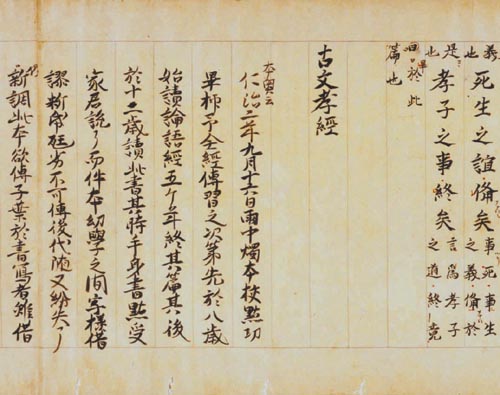 死生之誼備矣 事死事生
之義備於
是也 孝子之事終矣 言爲孝子
之道終
於此
篇也
古文孝經
本奥云
仁治二年九月十六日雨中燭本校點功
畢抑予全經傳習之次第先於八歳
始讀論語經五ケ年終其篇其後
於十二歳讀此書其時手身書點受
家君説了而件本幼學之間字樣僻
謬料紙尫劣不可傳後代随又紛失了
仍新調此本欲傳子葉於書寫者雖借